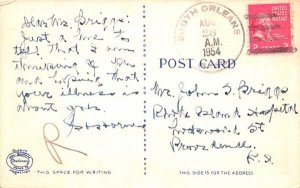 Dear Mr. Briggs:
Just a line to
tell that I am
thinking of you
and hope that
your illness is
about gone.
SOUTH ORLEANS
AUG
28
A.M.
1954
UNITED STATES
POSTAGE
2 CENTS 2
POST CARD
Mrs. John S. Briggs
Rhode Island Hospital
Lockwood St
Providence
R.I.
R
THIS SPACE FOR WRITING
THIS SIDE IS FOR THE ADDRESS